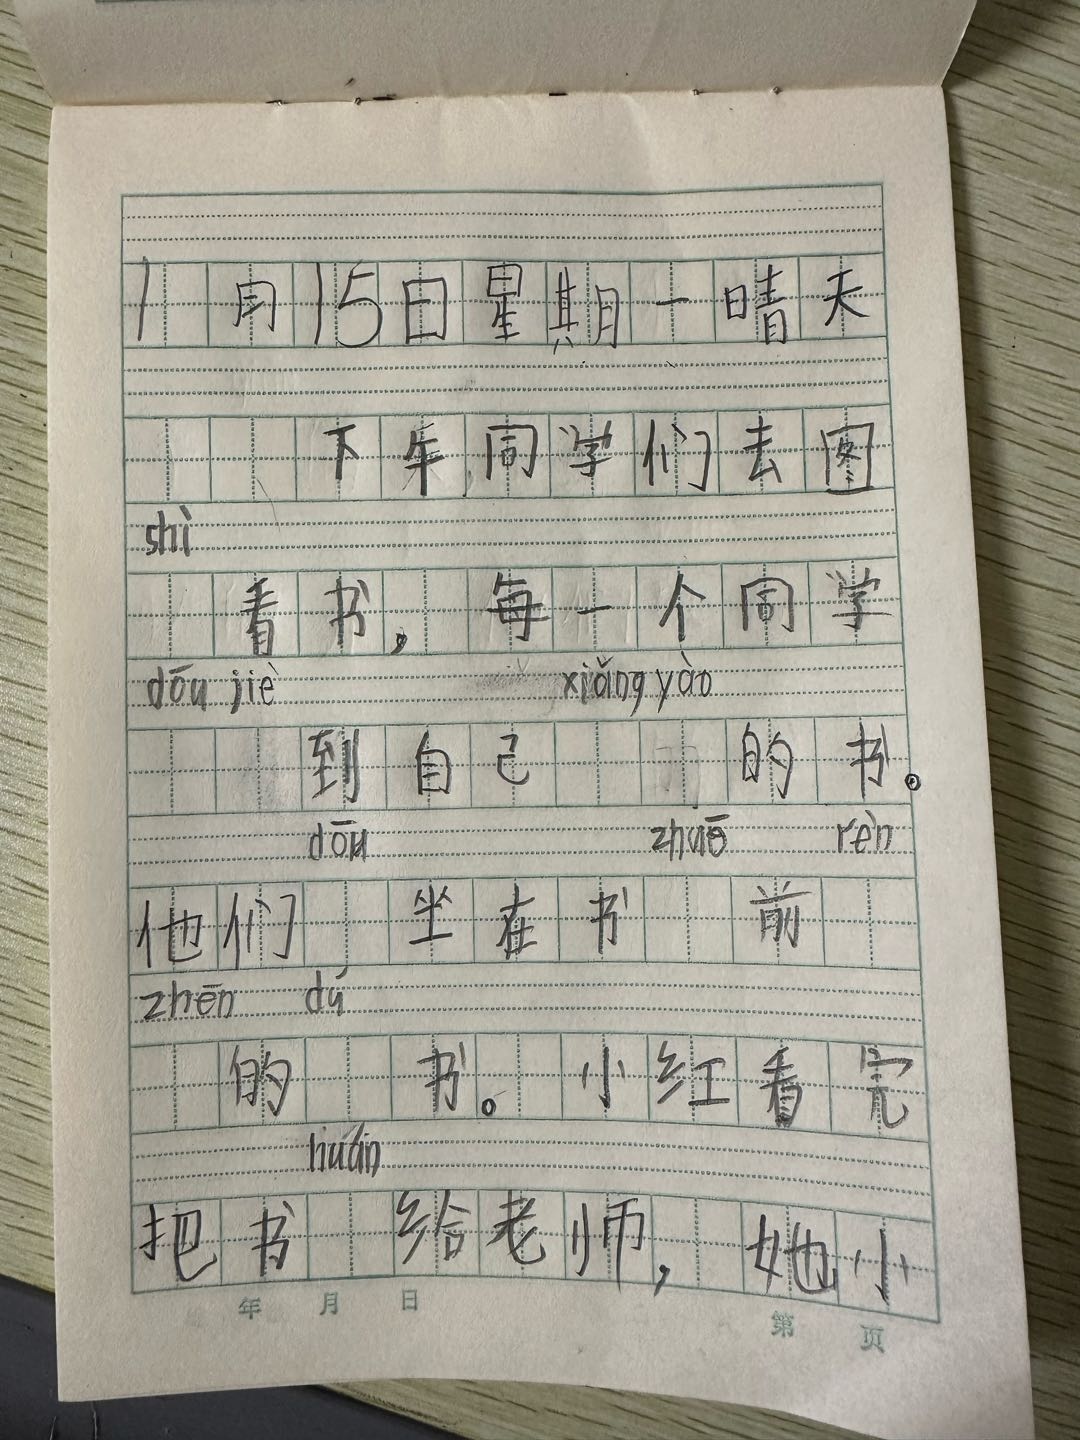 1月15日星期一晴天
下年同学们去图
shì
看书，每一个同学
dōu jiè xiǎng yào
到自己的书。
dōu zhuō rèn
他们坐在书前
zhēn dú
的书。小红看完
huán
把书给老师，她小
年 月 日 第 页